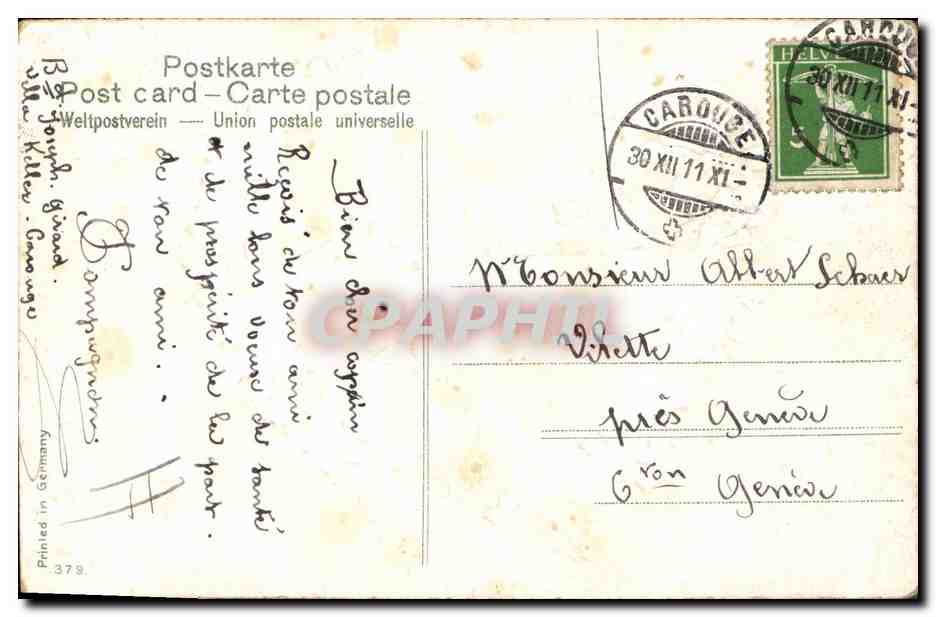 Postkarte
Post card – Carte postale
Weltpostverein — Union postale universelle
Bien cher copain
Reçois de ton ami
mille bons voeux de santé
et de prospérité de la part
de ton ami.
Joseph Girard.
Villa Keller. Carouge
Printed in Germany
379.
CAROUGE
30 XII 11 XI –
HELVETIA
5
CAROUGE
30 XII 11 XI –
Monsieur Albert Schaer
Villette
près Genève
Cton Genève
CPAPHIL